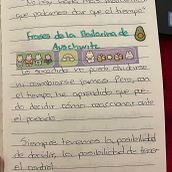 que podamos dar que el tiempo"
Frases de la Bailarina de
Auschwitz
Lo sucedido no puede olvidarse
ni cambiarse jamás. Pero, con
el tiempo, he aprendido que pue-
do decidir cómo reaccionar ante
el pasado.
Siempre tenemos la posibilidad
de decidir, la posibilidad de tener
el control.